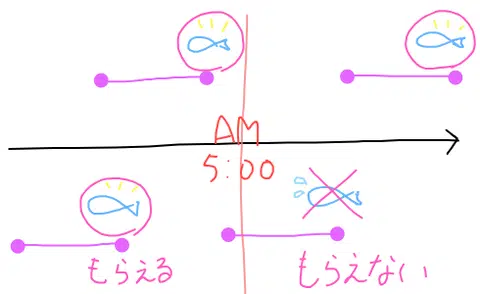 AM
5:00
もらえる
もらえない